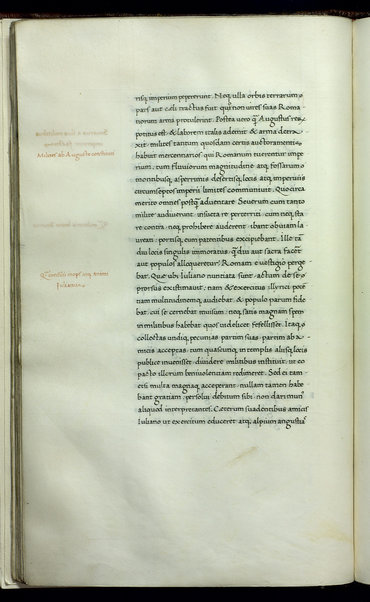 risq; imperium pepererunt. Neq; ulla orbis terrarum
pars aut celi tractus fuit qui non uires suas Roma
norum armis protulerint. Postea uero q̄ Augustus re
potitus est: & laborem italis ademit & arma detra
xit: milites tantum quosdam certis auctoramentis
habuit mercenarios qui Romanum tuerentur impe
rium. tum fluuiorum magnitudine atq; fossarum
montibusq; asperrimis desertisq; locis atq; imperuiis
circumseptos imperii limites communiuit. Quo circa
merito omnes postq̄ aduentare Seuerum cum tanto
milite audiuerunt. insueta re perterriti cum neq; sta
re contra. neq; prohibere auderent. ibant obuiam la
ureati. portisq; eum patentibus excipiebant. Ille
diu locis singulis immoratus. q̄ diu aut sacra
aut populos alloqueretur. Romam e uestigio perge
bat. Quæ ubi Iuliano nunciata sunt. actum de se
prorsus existimauit. nam & exercitus illyrici poten
tiam multitudinemq; audiebat. & populo parum fide
bat. cui se cernebat inuisum. neq; satis magnam spem
in militibus habebat quos uidelicet fefellisset. Itaq;
collectas undiq; pecunias partim suas. partim ab
micis acceptas. tum quascunq; in templis aliisq; locis
publicis inuenisset. diuidere militibus instituit. ut eo
pacto illorum beniuolentiam redimeret. Sed ei tam
etsi multa magnaq; acceperant. nullam tamen habe
bant gratiam. persolui debitum sibi. non dari munus
aliquod interpretantes. Cæterum suadentibus amicis
Iuliano ut exercitum educeret atq; alpium angustias
Milites ab Augusto conducti
inop atq; animi
Iulianus